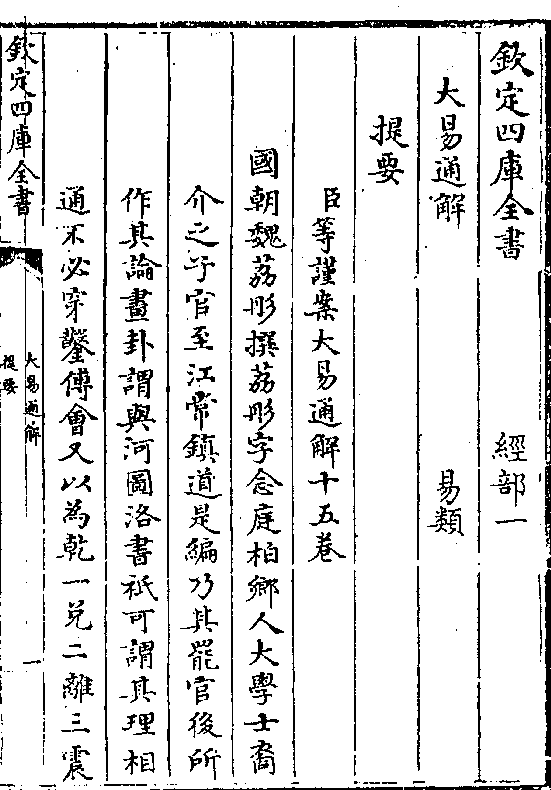 欽定四庫全書　經部一
大易通解　易類
提要
臣等謹案大易通解十五卷
國朝魏荔彤撰荔彤字念庭柏鄉人大學士裔
介之子官至江常鎮道是編乃其罷官後所
作其論畫卦謂與河圖洛書祇可謂其理相
通不必穿鑿傅會又以為乾一兌二離三震
欽定四庫全書
大易通解
提要
一